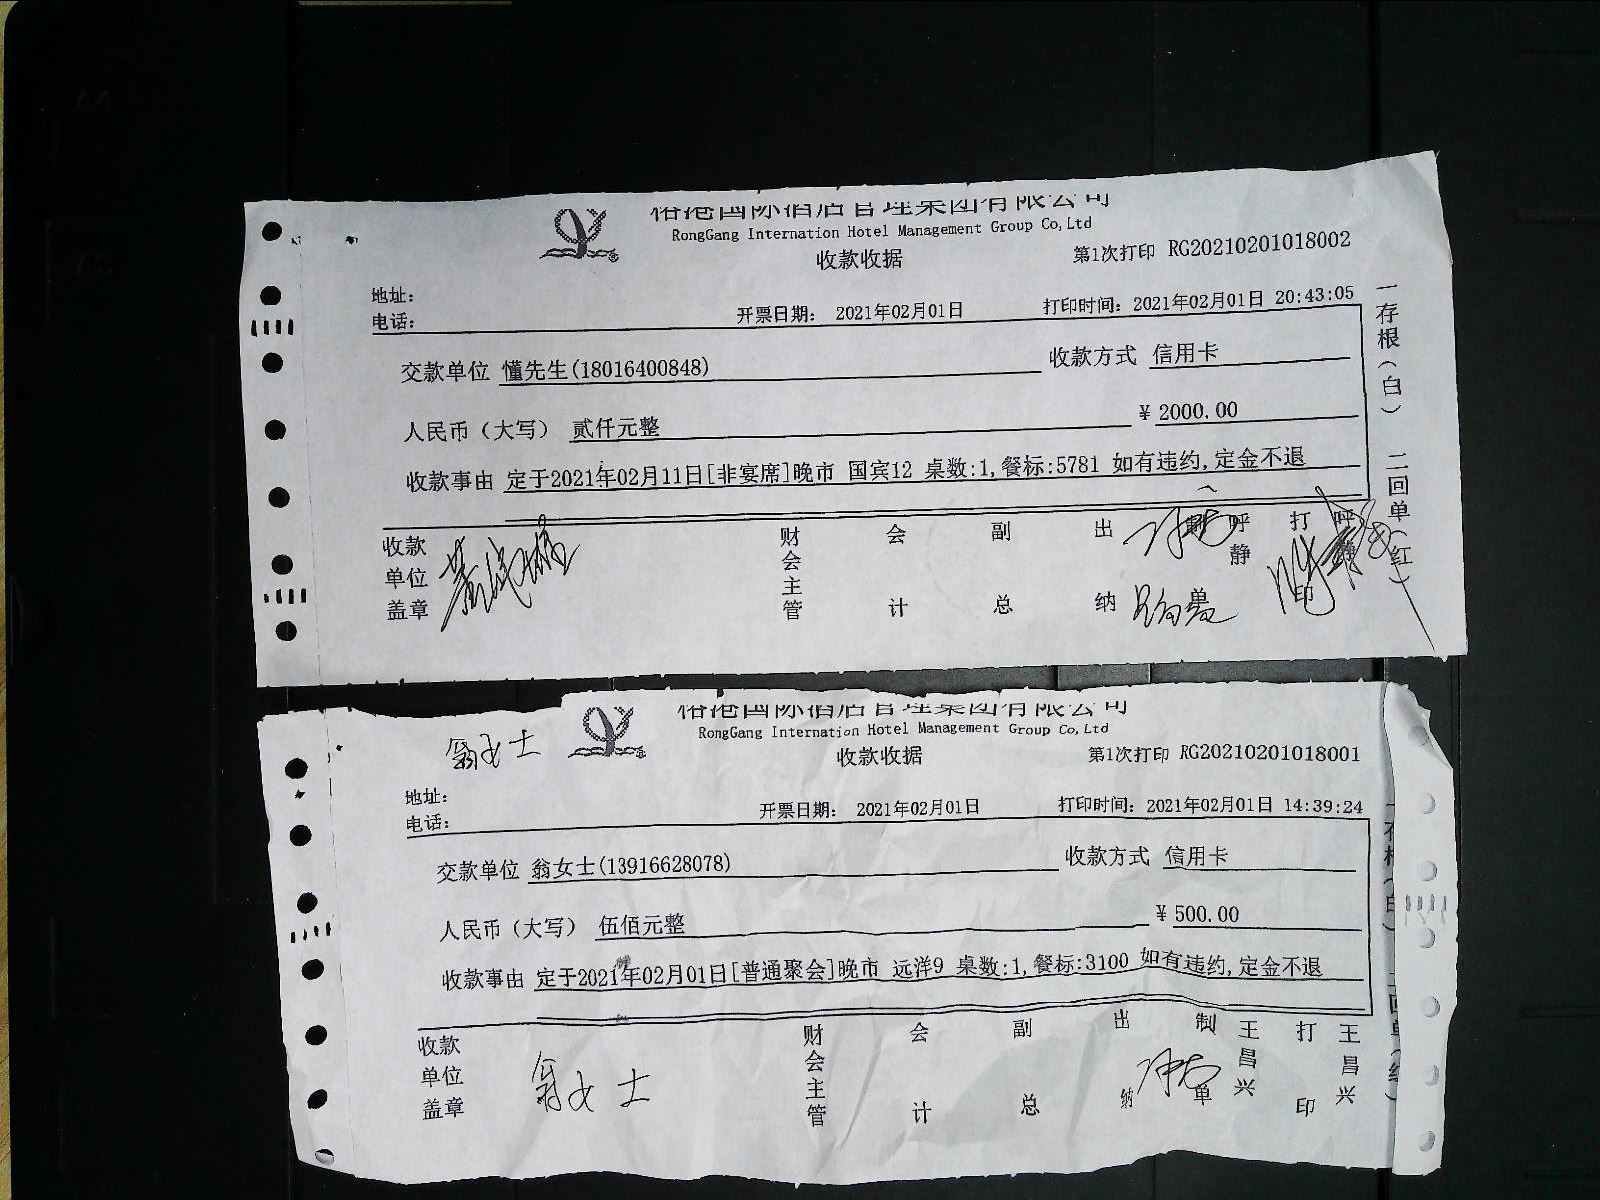 榕港国际酒店管理集团有限公司
RongGang Internation Hotel Management Group Co,Ltd
收款收据
第1次打印 RG20210201018002
地址：
电话：
开票日期： 2021年02月01日
打印时间：2021年02月01日 20:43:05
交款单位 懂先生(18016400848)
收款方式 信用卡
人民币（大写） 贰仟元整
¥ 2000.00
收款事由 定于2021年02月11日[非宴席]晚市 国宾12 桌数:1,餐标:5781 如有违约,定金不退
收款单位盖章
财会主管
会计
副总
出纳
制单
呼静
打印
呼静
一存根（白） 二回单（红）
榕港国际酒店管理集团有限公司
RongGang Internation Hotel Management Group Co,Ltd
翁女士
收款收据
第1次打印 RG20210201018001
地址：
电话：
开票日期： 2021年02月01日
打印时间：2021年02月01日 14:39:24
交款单位 翁女士(13916628078)
收款方式 信用卡
人民币（大写） 伍佰元整
¥ 500.00
收款事由 定于2021年02月01日[普通聚会]晚市 远洋9 桌数:1,餐标:3100 如有违约,定金不退
收款单位盖章
翁女士
财会主管
会计
副总
出纳
制单
王昌兴
打印
王昌兴